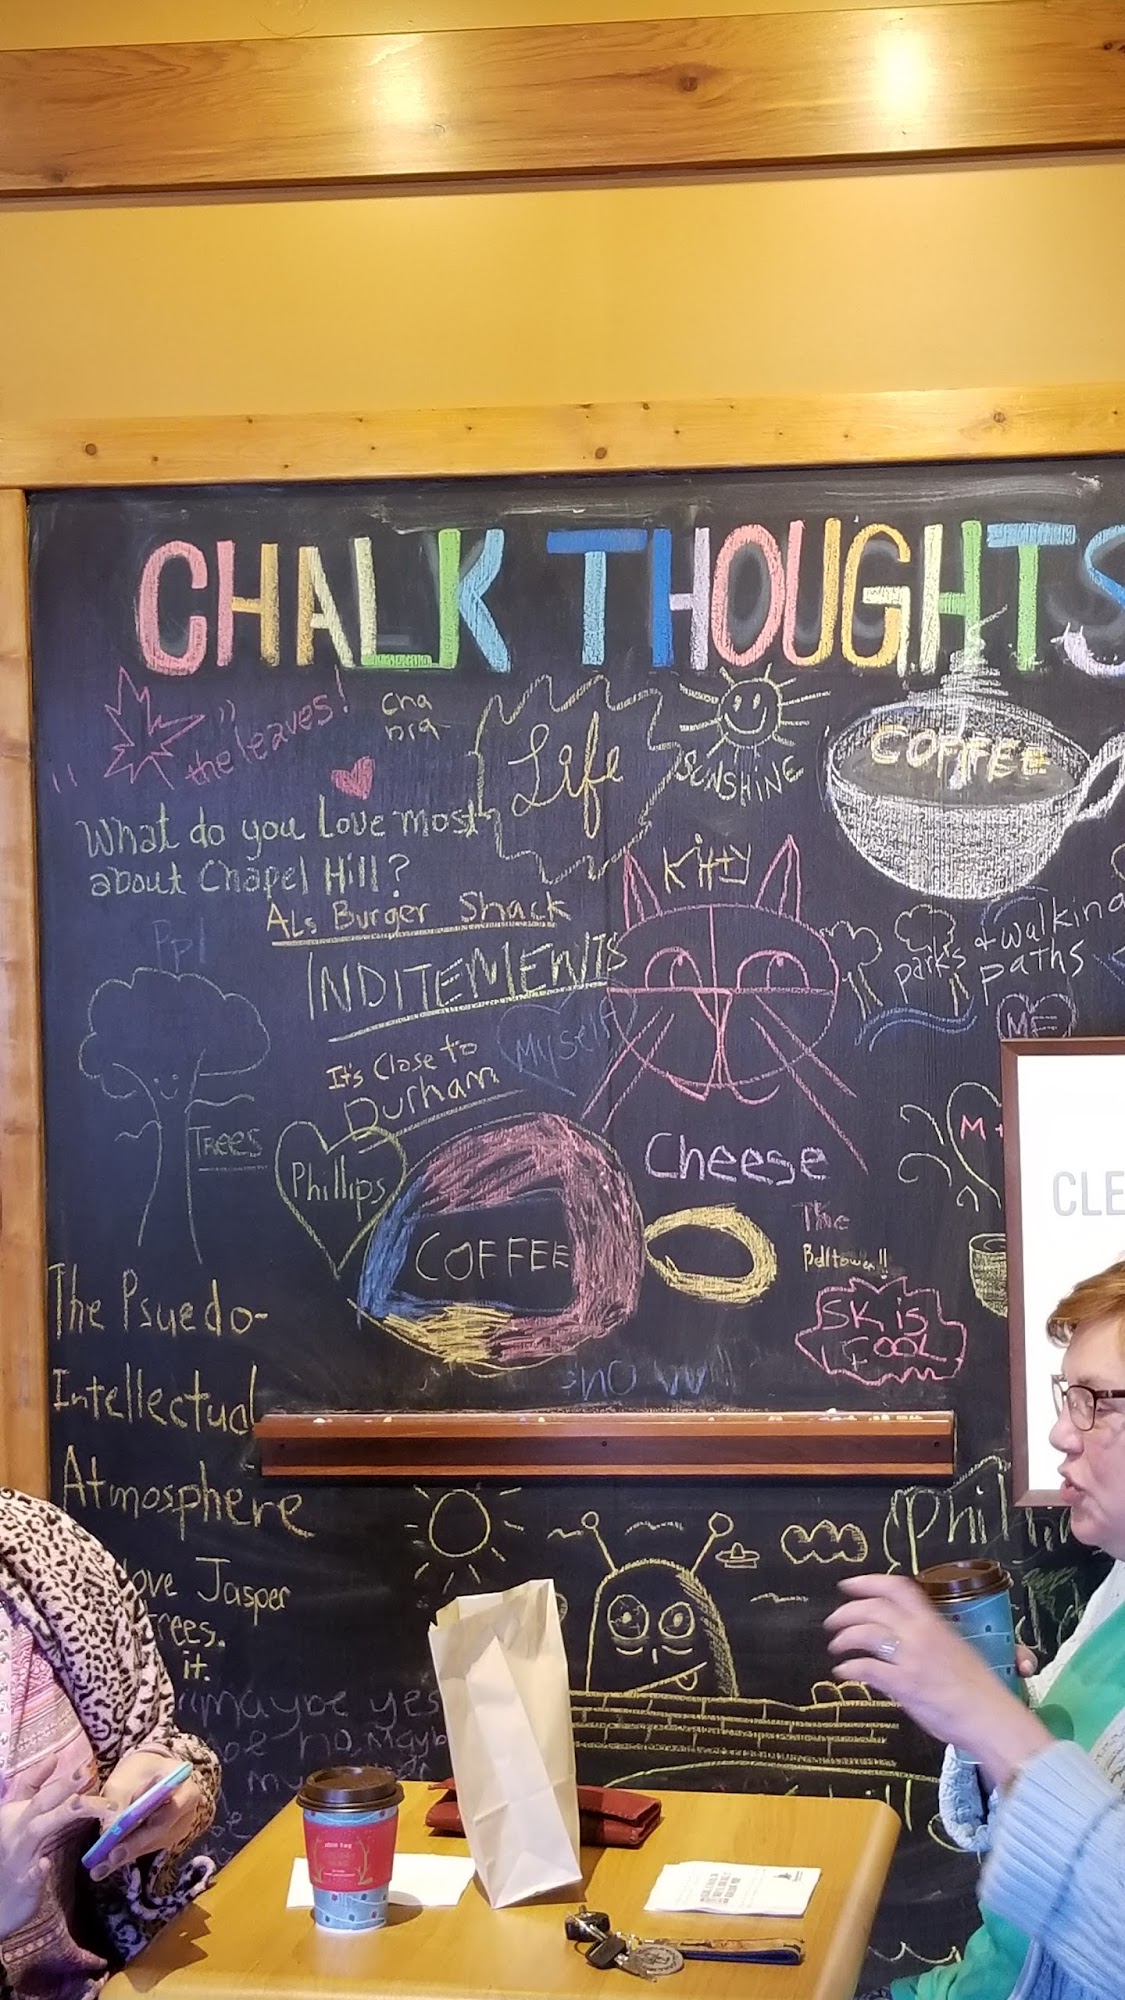 CHALK THOUGHTS
"the leaves!"
Cha
nra
Life
SUNSHINE
COFFEE
What do you Love most
about Chapel Hill?
Kitty
ALs Burger Shack
Ppl
INDITEMENTS
parks + walking
paths
ME
Myself
It's Close to
Durham
TREES
Phillips
M +
Cheese
COFFEE
The
Belltower!!
SK is
COOL
CLE
The Psuedo-
Intellectual
Atmosphere
ove Jasper
rees.
it.
maybe yes
no, mayb
my